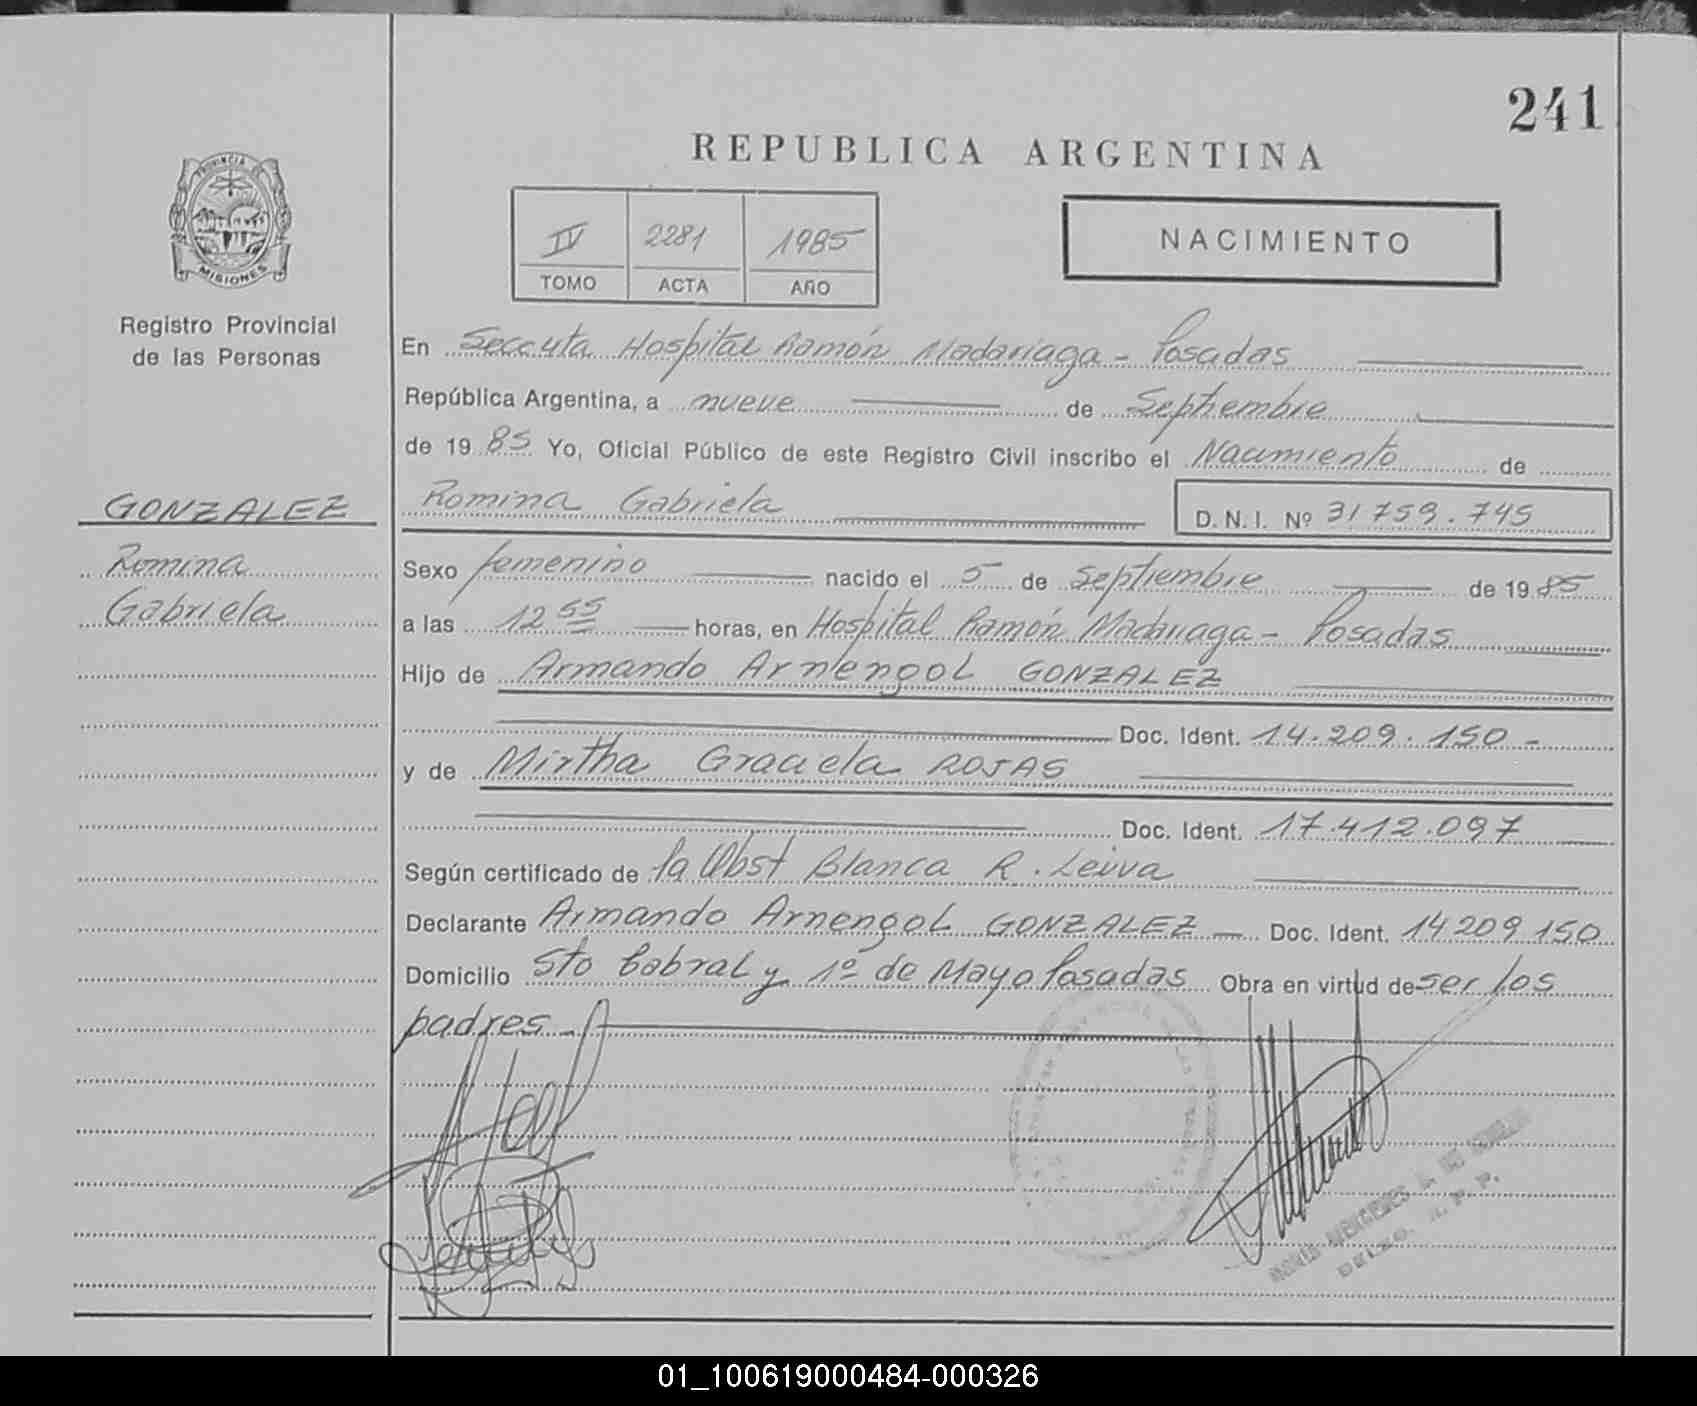 241
REPUBLICA ARGENTINA
PROVINCIA
MISIONES
Registro Provincial
de las Personas
IV 2281 1985
TOMO ACTA AÑO
NACIMIENTO
En Seccuta Hospital Ramón Madariaga - Posadas
República Argentina, a nueve de Septiembre
de 1985 Yo, Oficial Público de este Registro Civil inscribo el Nacimiento de
GONZALEZ
Romina
Gabriela
Romina Gabriela D. N. I. Nº 31759.745
Sexo femenino nacido el 5 de Septiembre de 1985
a las 12 55 horas, en Hospital Ramón Madariaga - Posadas
Hijo de Armando Armengol GONZALEZ
Doc. Ident. 14.209.150 -
y de Mirtha Graciela ROJAS
Doc. Ident. 17.412.097
Según certificado de la Obst Blanca R. Leiva
Declarante Armando Armengol GONZALEZ - Doc. Ident. 14209150
Domicilio Sto Cabral y 1º de Mayo Posadas Obra en virtud de ser los
padres
01_100619000484-000326